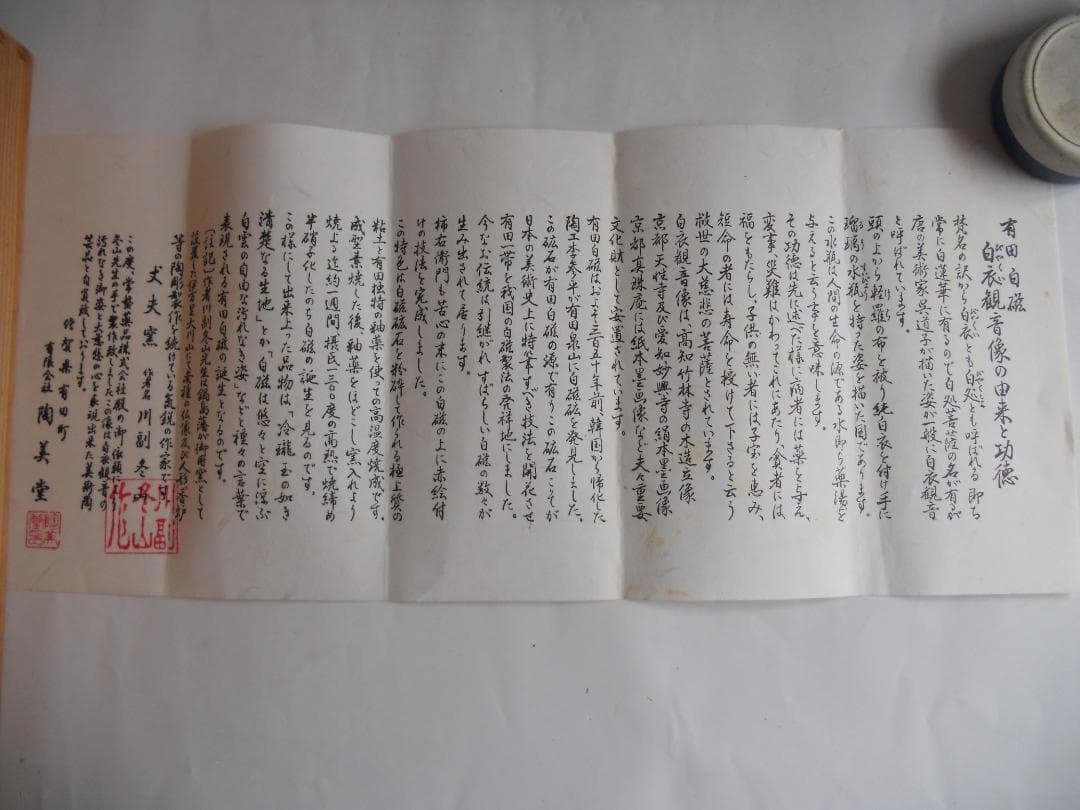 有田白磁
白衣観音像の由来と功徳
梵名の訳から白衣とも白処とも呼ばれる即ち
常に白蓮華に有るので白処菩薩の名が有るが
唐の美術家呉道子が描いた姿が一般に白衣観音
と呼ばれています。
頭の上から軽羅の布を被り純白衣を付け手に
瑠璃の水瓶を持った姿を描いた図であります。
この水瓶は人間の生命の源である水即ち薬湯を
与えると云う事を意味します。
その功徳先に述べた様に病者には薬を与え、
変事、災難はかわってこれにあたり貧者には、
福をもたらし、子供の無い者には子宝を恵み、
短命の者には寿命を授けて下さると云う
救世の大慈悲の菩薩とされています。
白衣観音像は、高知竹林寺の木造立像
京都天性寺及び愛知妙興寺の絹本墨画像
京都真珠庵には紙本墨画像など夫々重要
文化財として安置されています。
有田白磁はおよそ三百五十年前、韓国から帰化した
陶工李参平が有田泉山に白磁砿を発見しました。
この砿石が有田白磁の源で有りこの砿石こそが
日本の美術史上に特筆すべき技法を開花させ
有田一帯を我国の白磁製法の発祥地にしました。
今なお伝統は引継がれ、すばらしい白磁の数々が
生み出されて居ります。
柿右衛門も苦心の末にこの白磁の上に赤絵付
けの技法を完成しました。
この特色は白磁砿石を粉砕して作られる極上質の
粘土と有田独特の釉薬を使っての高温度焼成です。
成型素焼した後、釉薬をほどこし窯入れより
焼上る迄約一週間摂氏一三〇〇度の高熱で焼締め
半硝子化したのち白磁の誕生を見るのです。
この様にして出来上った品物は「冷瓏玉の如き
清楚なる生地」とか「白磁は悠々と空に浮ぶ
白雲の自由な汚れなき姿」などと種々の言葉で
表現される有田白磁の誕生となるのです。
(注記)作者川副冬山先生は鍋島藩が御用窯として
等の陶彫製作を続けている気鋭の作家です。
犬夫窯 作者名 川副冬山
この度、常盤薬品株式会社殿の御依頼により
冬山先生の手で製作致しましたこの像は白衣観音の
汚れなき御姿と大慈悲の心を表現出来た美術陶
芸品と自賛致しています。
佐賀県有田町
有限会社 陶美堂
川副
冬山
作